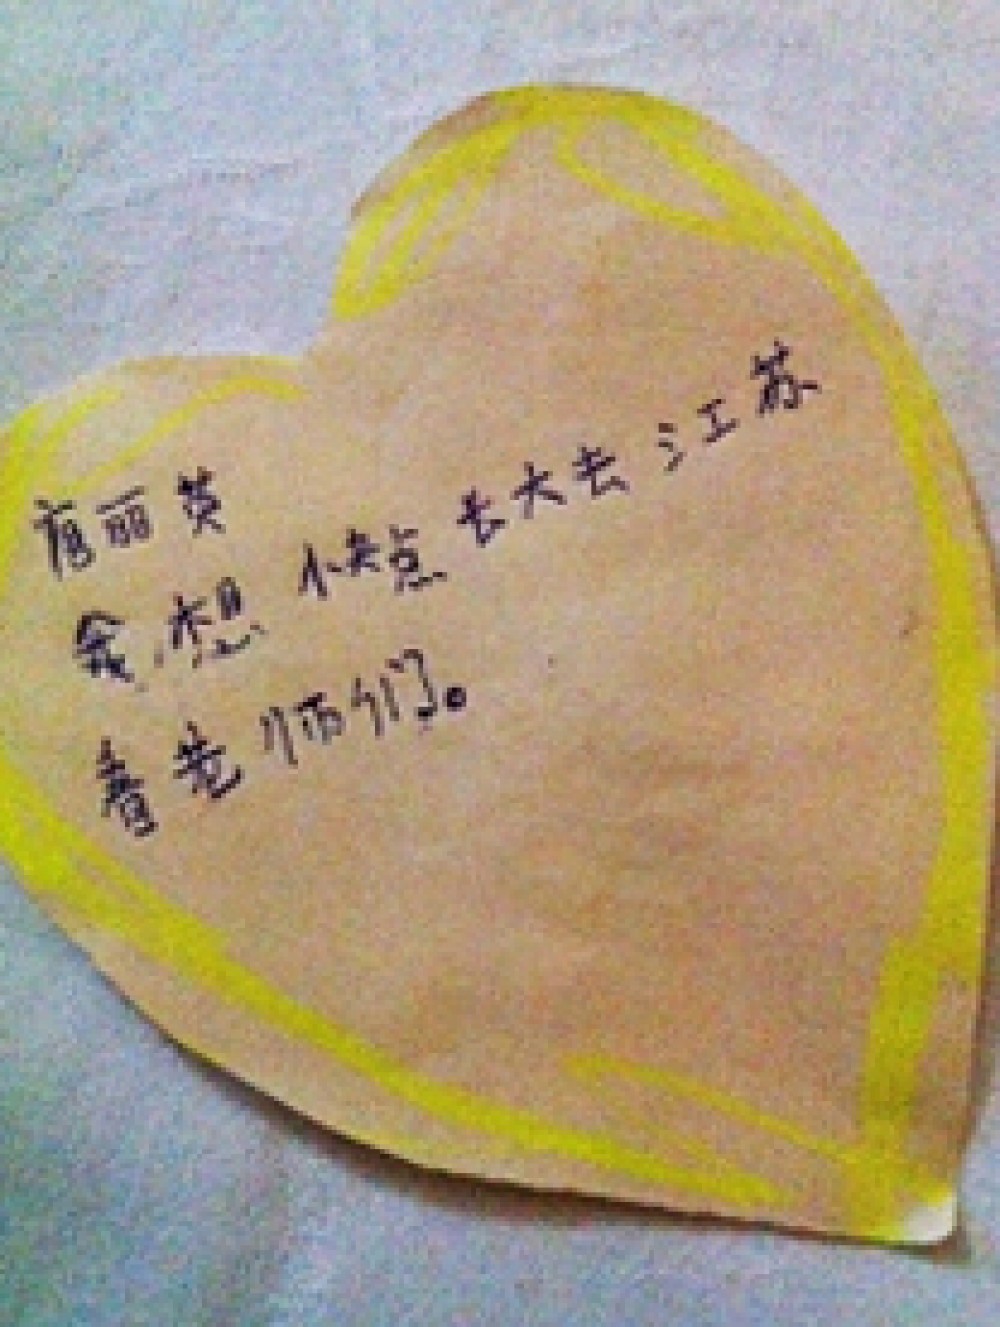 唐丽英
我想快点长大去江苏
看老师们。